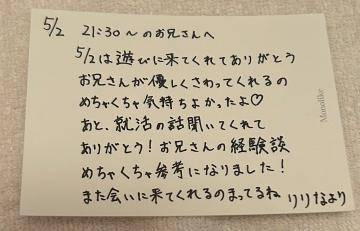 5/2 21:30〜のお兄さんへ
5/2は遊びに来てくれてありがとう
お兄さんが優しくさわってくれるの
めちゃくちゃ気持ちよかったよ♡
あと、就活の話聞いてくれて
ありがとう！お兄さんの経験談
めちゃくちゃ参考になりました！
また会いに来てくれるのまってるね
りりなより